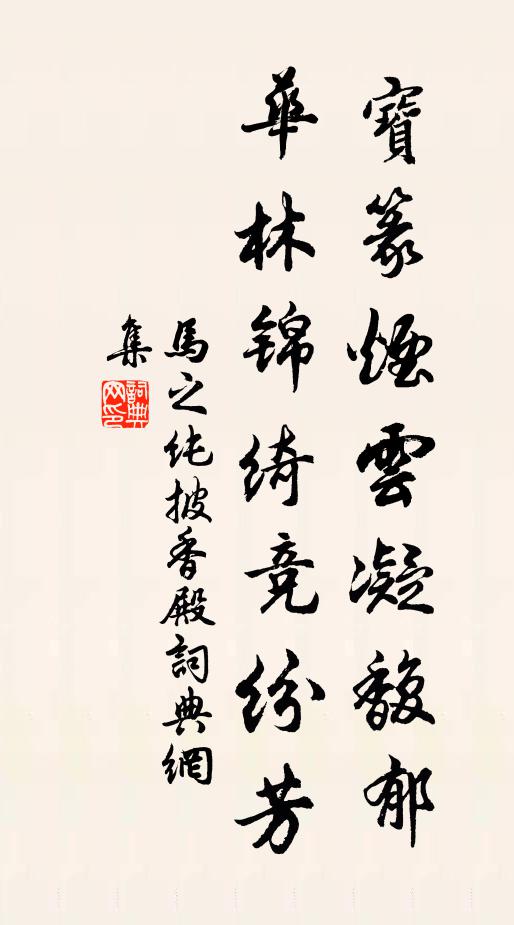 寶篆煙雲凝馥郁
華林錦綺竞紛芳
馬之純披香殿詞典網
集
詞典
网印